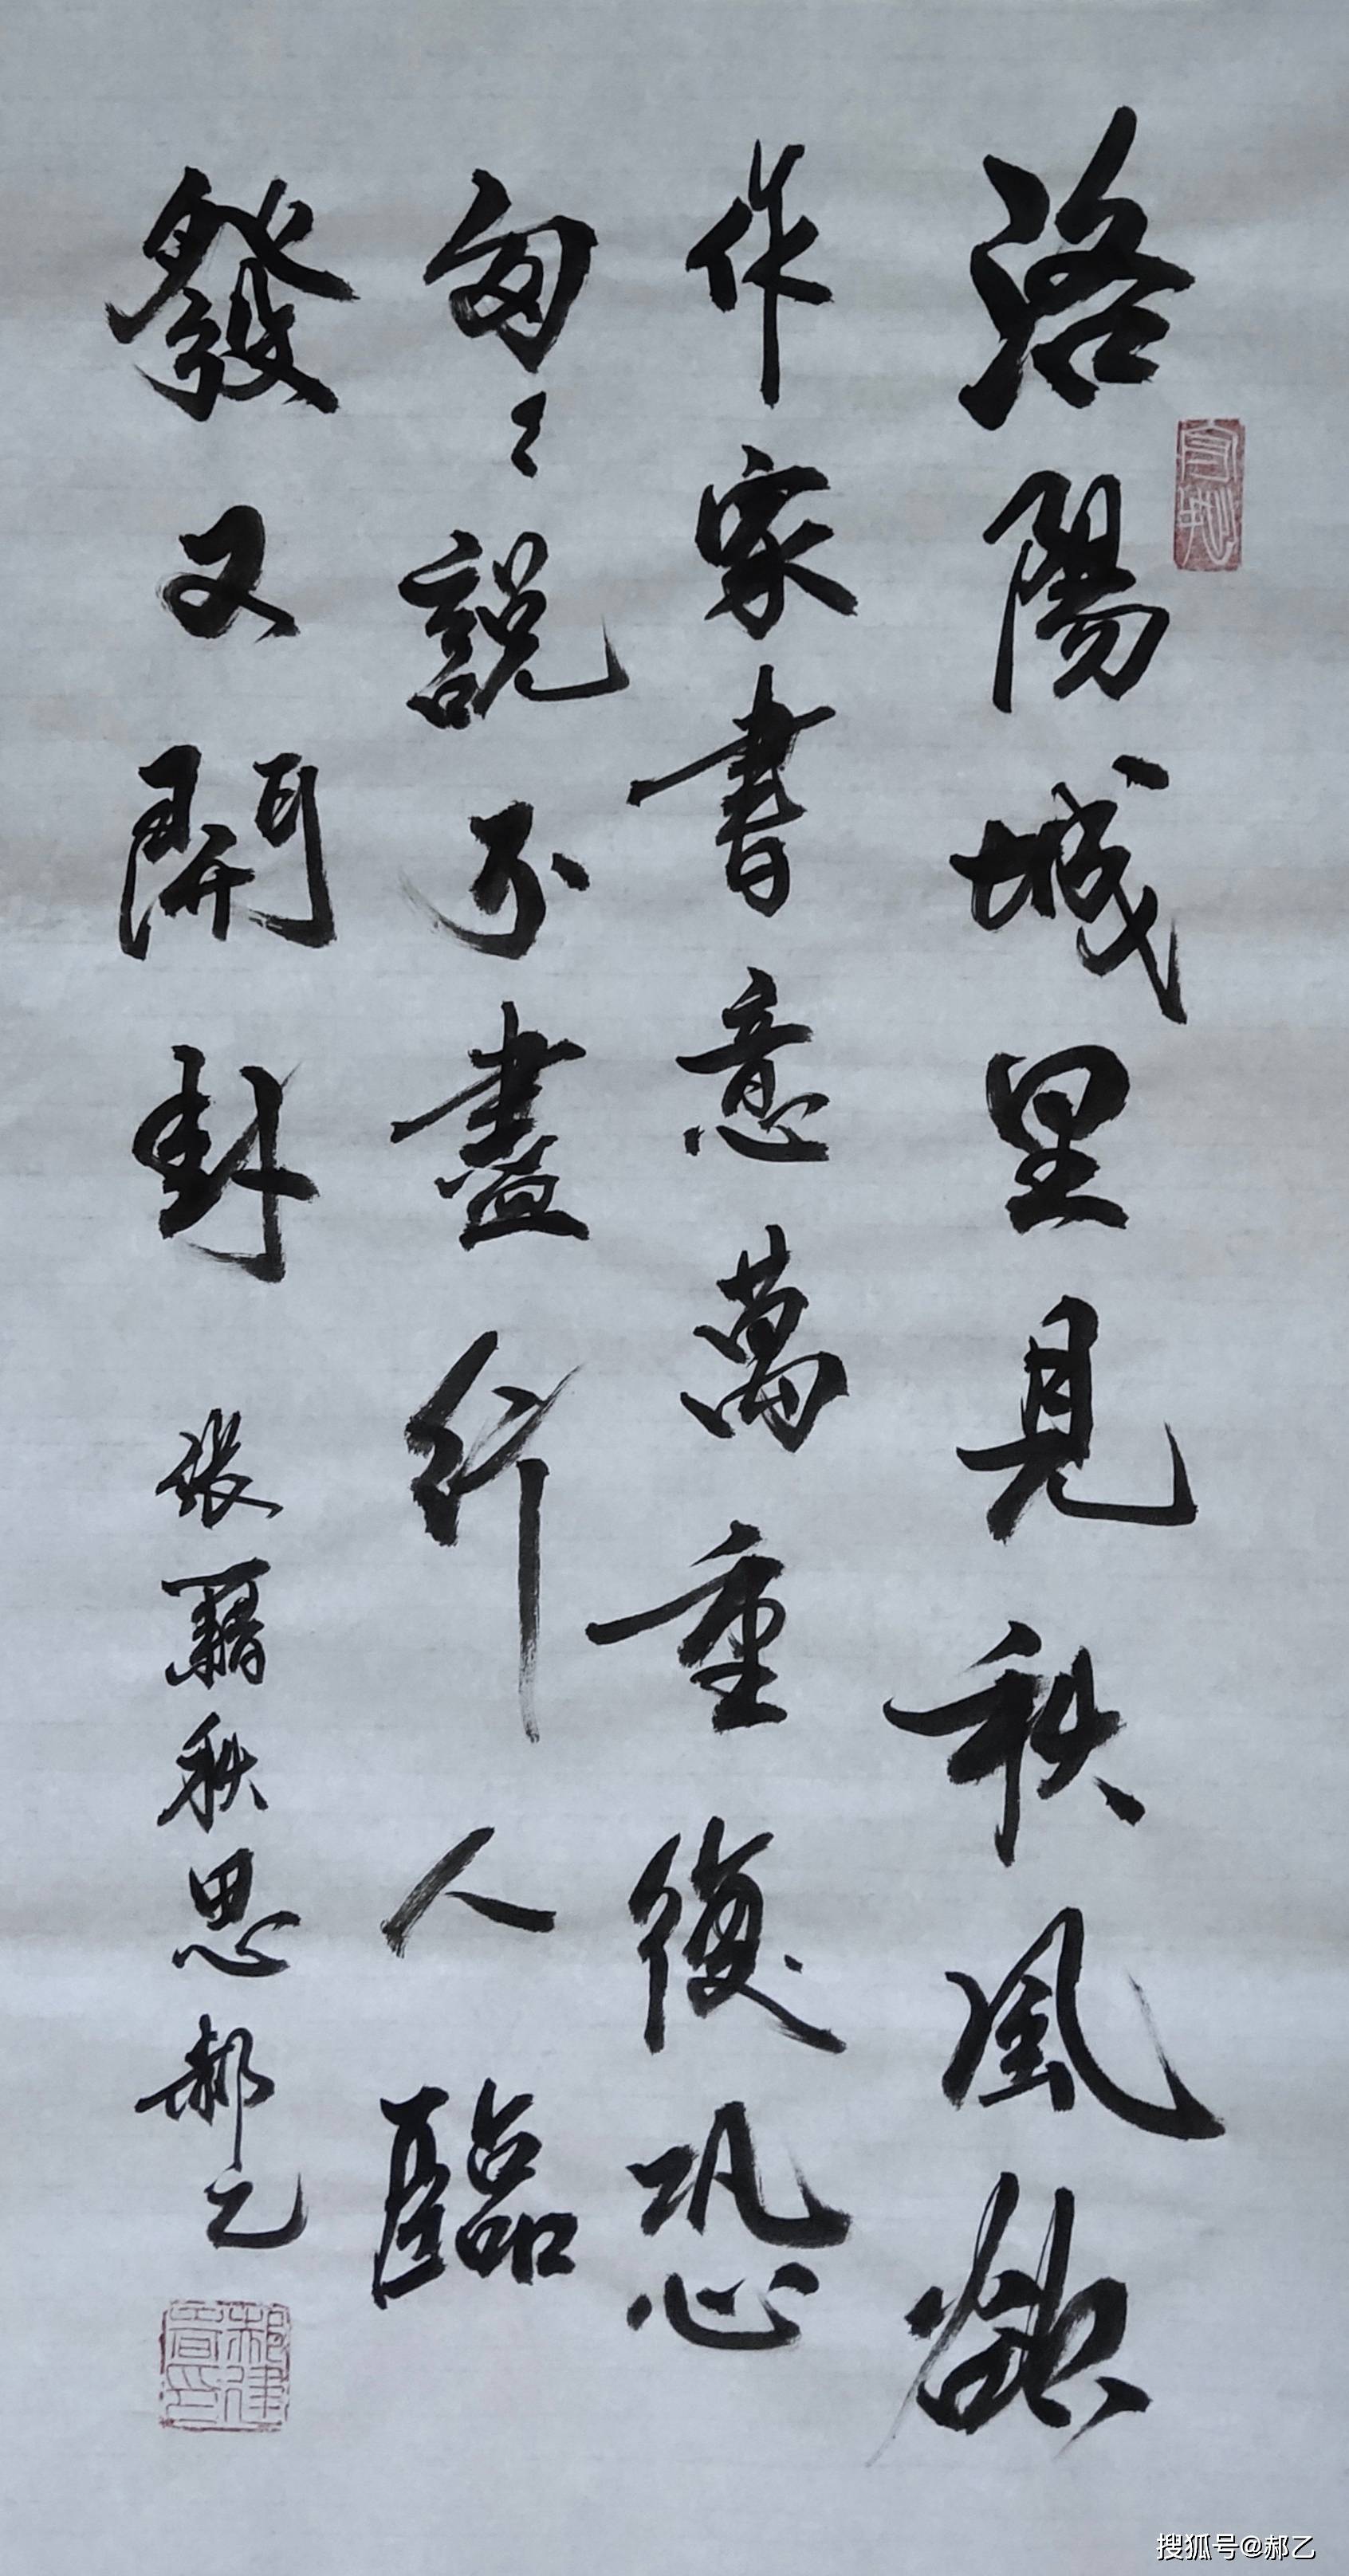 洛陽城里見秋風欲
作家書意萬重復恐
匆々說不盡行人臨
發又開封
張籍秋思郝乙
搜狐号@郝乙